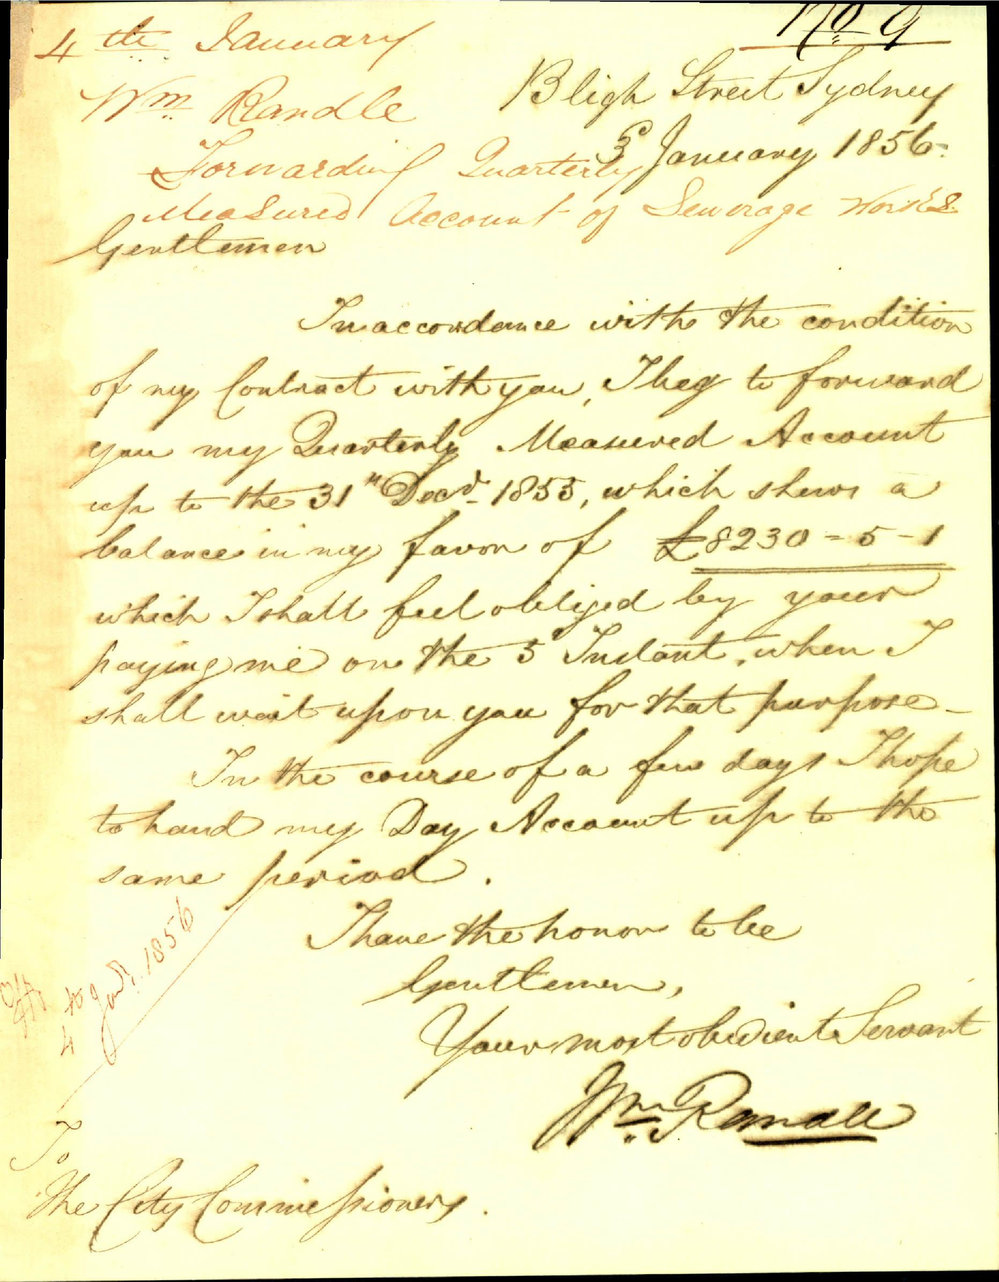 No. 9
4th January
Wm. Randle
Forwarding Quarterly
Measured Account of Sewerage Works
Bligh Street Sydney
3d January 1856.
Gentlemen
In accordance with the condition
of my Contract with you, I beg to forward
you my Quarterly Measured Account
up to the 31st Decr. 1855, which shews a
balance in my favor of £8230-5-1
which I shall feel obliged by your
paying me on the 5th Instant, when I
shall wait upon you for that purpose_
In the course of a few days I hope
to hand my Day Account up to the
same period.
I have the honor to be
Gentlemen,
Your most obedient Servant
Wm. Randle
4th Jany. 1856
To
The City Commissioners.